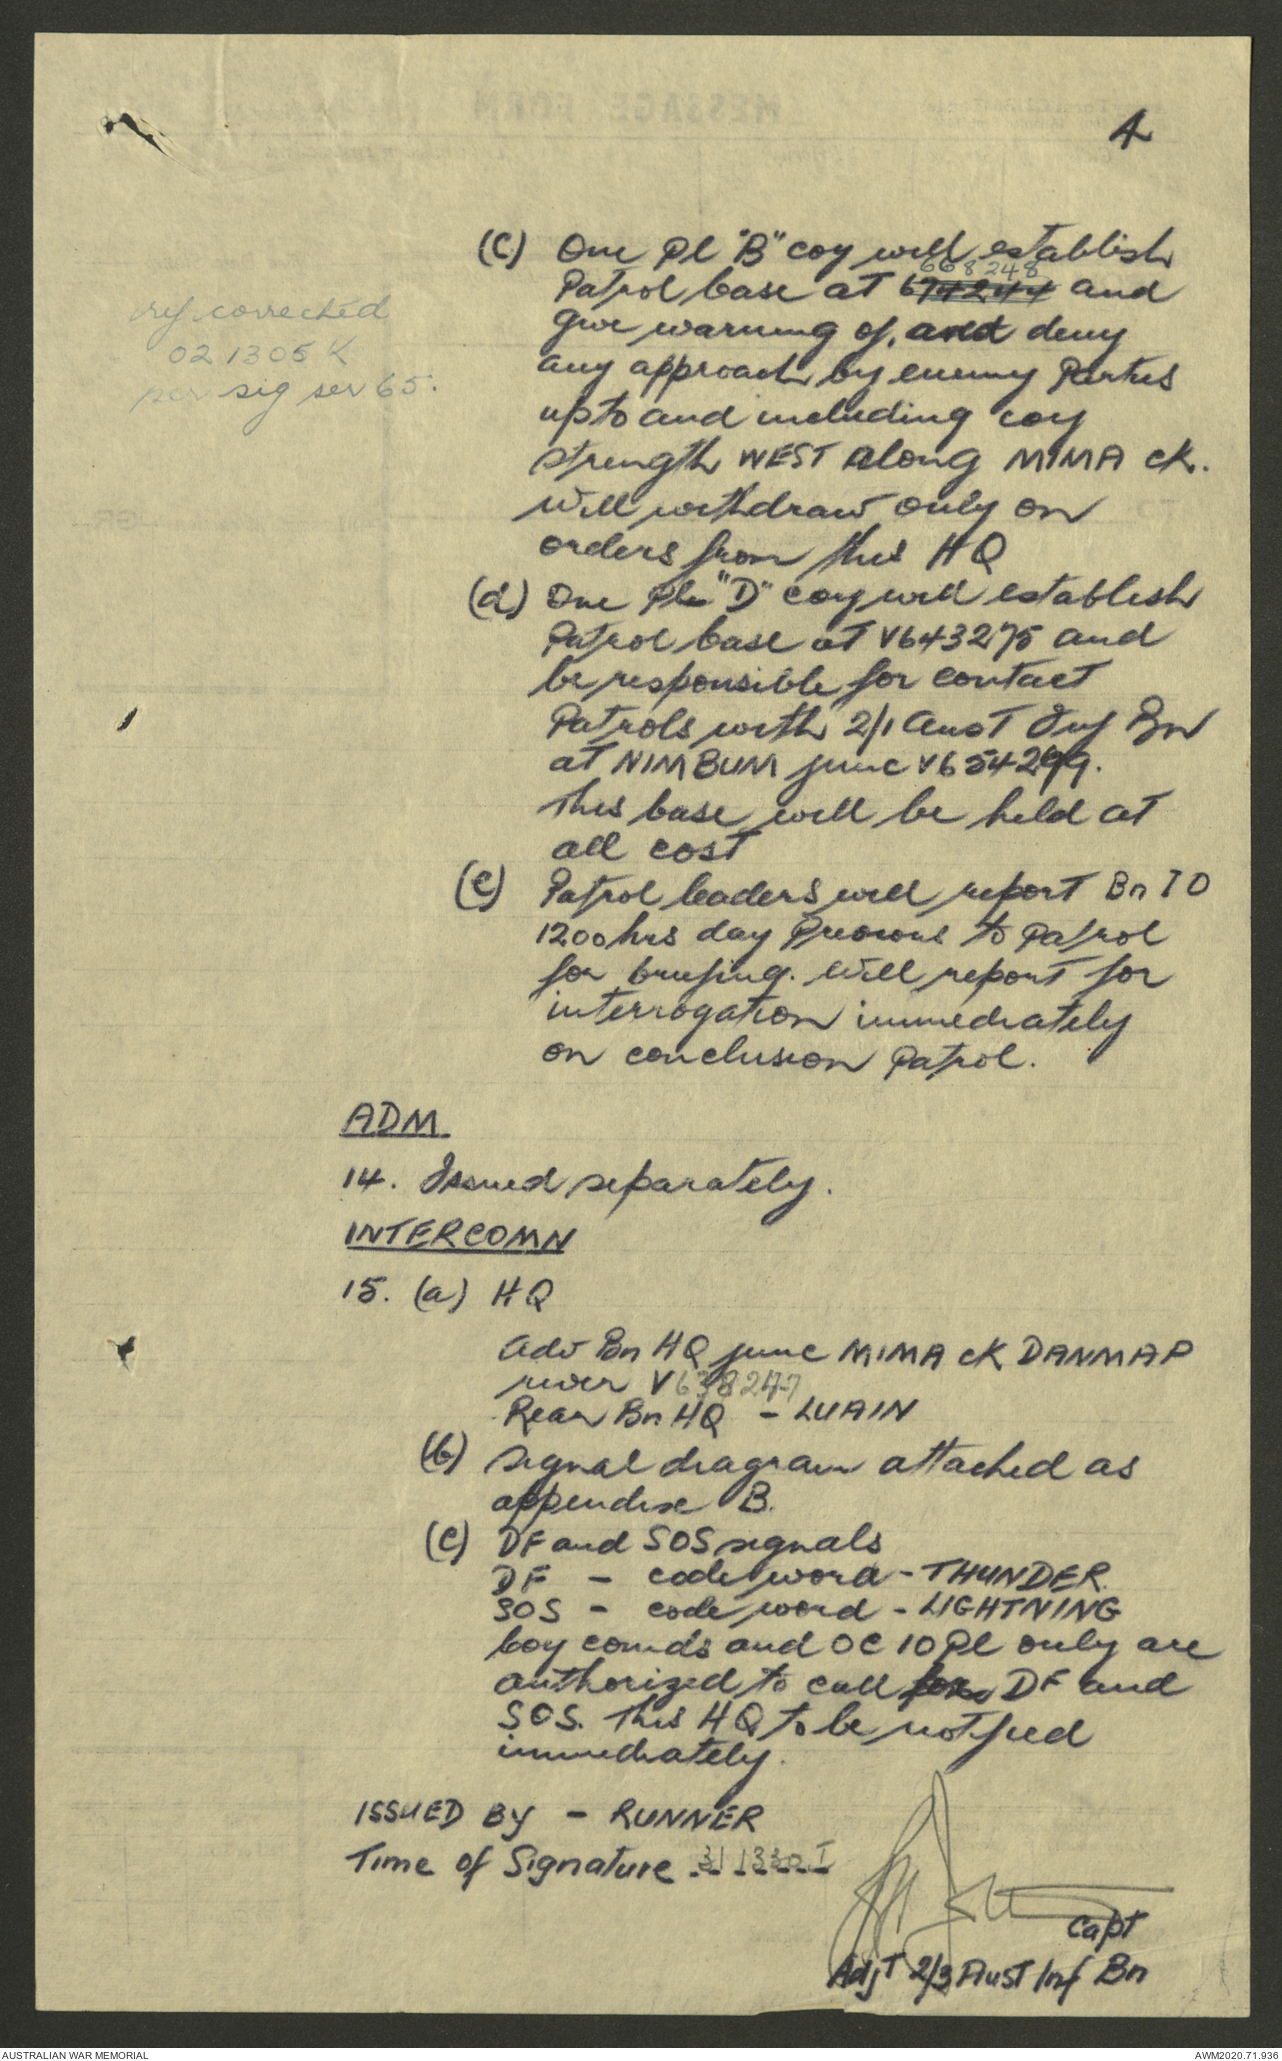 4
(c) One Pl "B" coy will establish
668248
Patrol base at 674244 and
give warning of, and deny
any approach by enemy Parties
up to and including coy
strength WEST along MIMA CK.
Will withdraw only on
orders from this HQ
ref corrected
021305K
per sig ser 65.
(d) One Pl "D" coy will establish
Patrol base at V643275 and
be responsible for contact
Patrols with 2/1 Aust Inf Bn
at NIMBUM junc V654299.
This base will be held at
all cost
(e) Patrol leaders will report Bn IO
1200hrs day Previous to Patrol
for briefing. Will report for
interrogation immediately
on conclusion Patrol.
ADM
14. Issued separately.
INTERCOMN
15. (a) HQ
Adv Bn HQ junc MIMA CK DANMAP
river V638247
Rear Bn HQ - LUAIN
(b) Signal diagram attached as
appendix B.
(c) DF and SOS signals
DF - code word - THUNDER
SOS - code word - LIGHTNING
Coy comds and OC 10 Pl only are
authorized to call for DF and
SOS. This HQ to be notified
immediately.
ISSUED BY - RUNNER
Time of Signature 311330I
Capt
Adjt 2/3 Aust Inf Bn
AUSTRALIAN WAR MEMORIAL
AWM2020.71.936